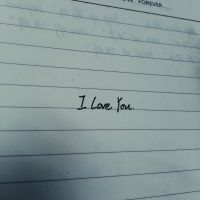 FOREVER...
I Love You.